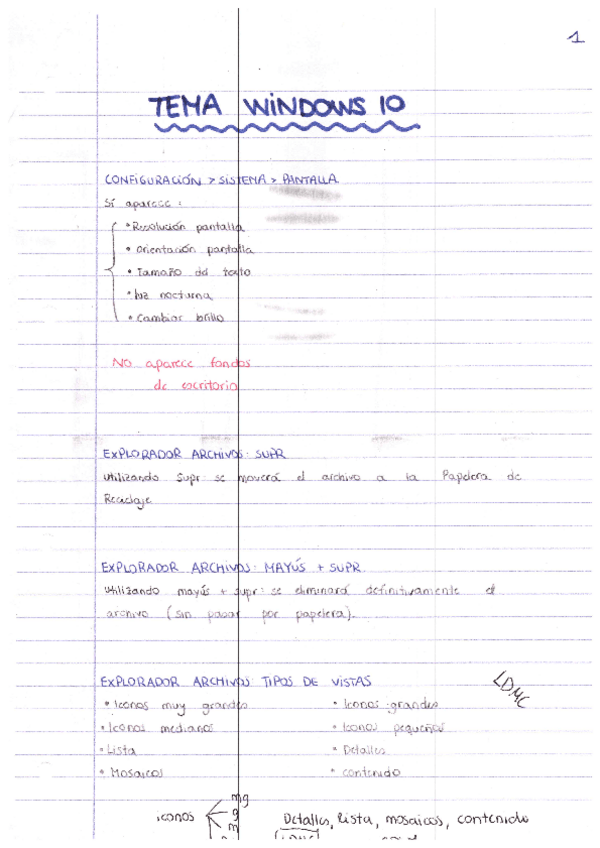 1
TEMA WINDOWS 10
CONFIGURACIÓN > SISTEMA > PANTALLA
Sí aparece:
• Resolución pantalla
• Orientación pantalla
• Tamaño del texto
• luz nocturna
• cambiar brillo
No aparece fondos
de escritorio
EXPLORADOR ARCHIVOS: SUPR
Utilizando Supr: se moverá el archivo a la Papelera de
Reciclaje
EXPLORADOR ARCHIVOS: MAYÚS + SUPR.
Utilizando mayús + supr: se eliminará definitivamente el
archivo (sin pasar por papelera).
EXPLORADOR ARCHIVOS: TIPOS DE VISTAS
LDMC
• Iconos muy grandes • Iconos grandes
• Iconos medianos • Iconos pequeños
• Lista • Detalles
• Mosaicos • contenido
mg
iconos g Detalles, lista, mosaicos, contenido
m